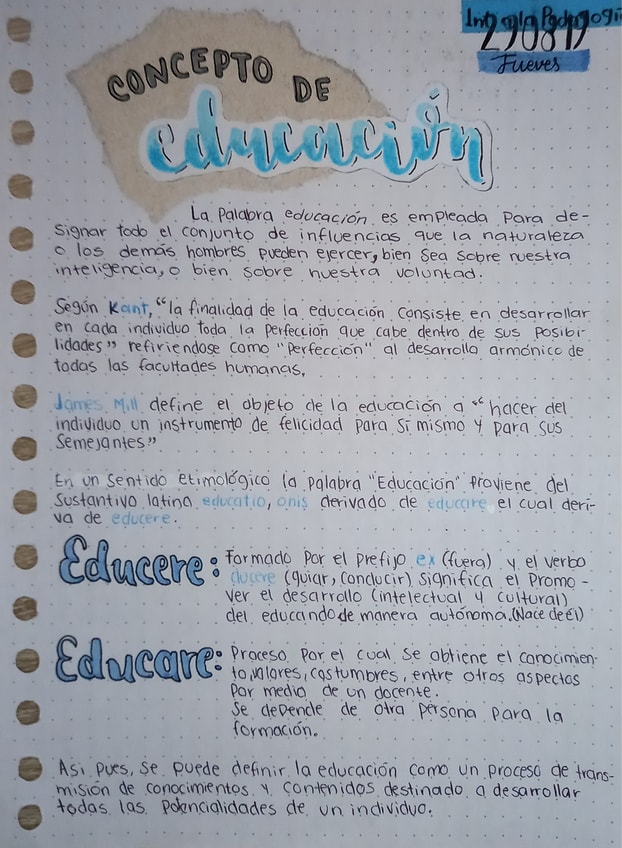 Int a la Pedagogía
290819
Jueves
CONCEPTO DE
educación
La palabra educación es empleada para de-
signar todo el conjunto de influencias que la naturaleza
o los demás hombres pueden ejercer, bien sea sobre nuestra
inteligencia, o bien sobre nuestra voluntad.
Según Kant, "la finalidad de la educación consiste en desarrollar
en cada individuo toda la perfección que cabe dentro de sus posibi-
lidades" refiriendose como "perfección" al desarrollo armónico de
todas las facultades humanas.
James Mill define el objeto de la educación a "hacer del
individuo un instrumento de felicidad para sí mismo y para sus
semejantes"
En un sentido etimológico la palabra "Educación" proviene del
sustantivo latino educatio, onis derivado de educare, el cual deri-
va de educere.
Educere: Formado por el prefijo ex (fuera) y el verbo
ducere (guiar, conducir) significa el promo-
ver el desarrollo (intelectual y cultural)
del educando de manera autónoma. (Nace de él)
Educare: Proceso por el cual se obtiene el conocimien-
to, valores, costumbres, entre otros aspectos
por medio de un docente.
Se depende de otra persona para la
formación.
Asi pues, se puede definir la educación como un proceso de trans-
misión de conocimientos y contenidos destinado a desarrollar
todas las potencialidades de un individuo.